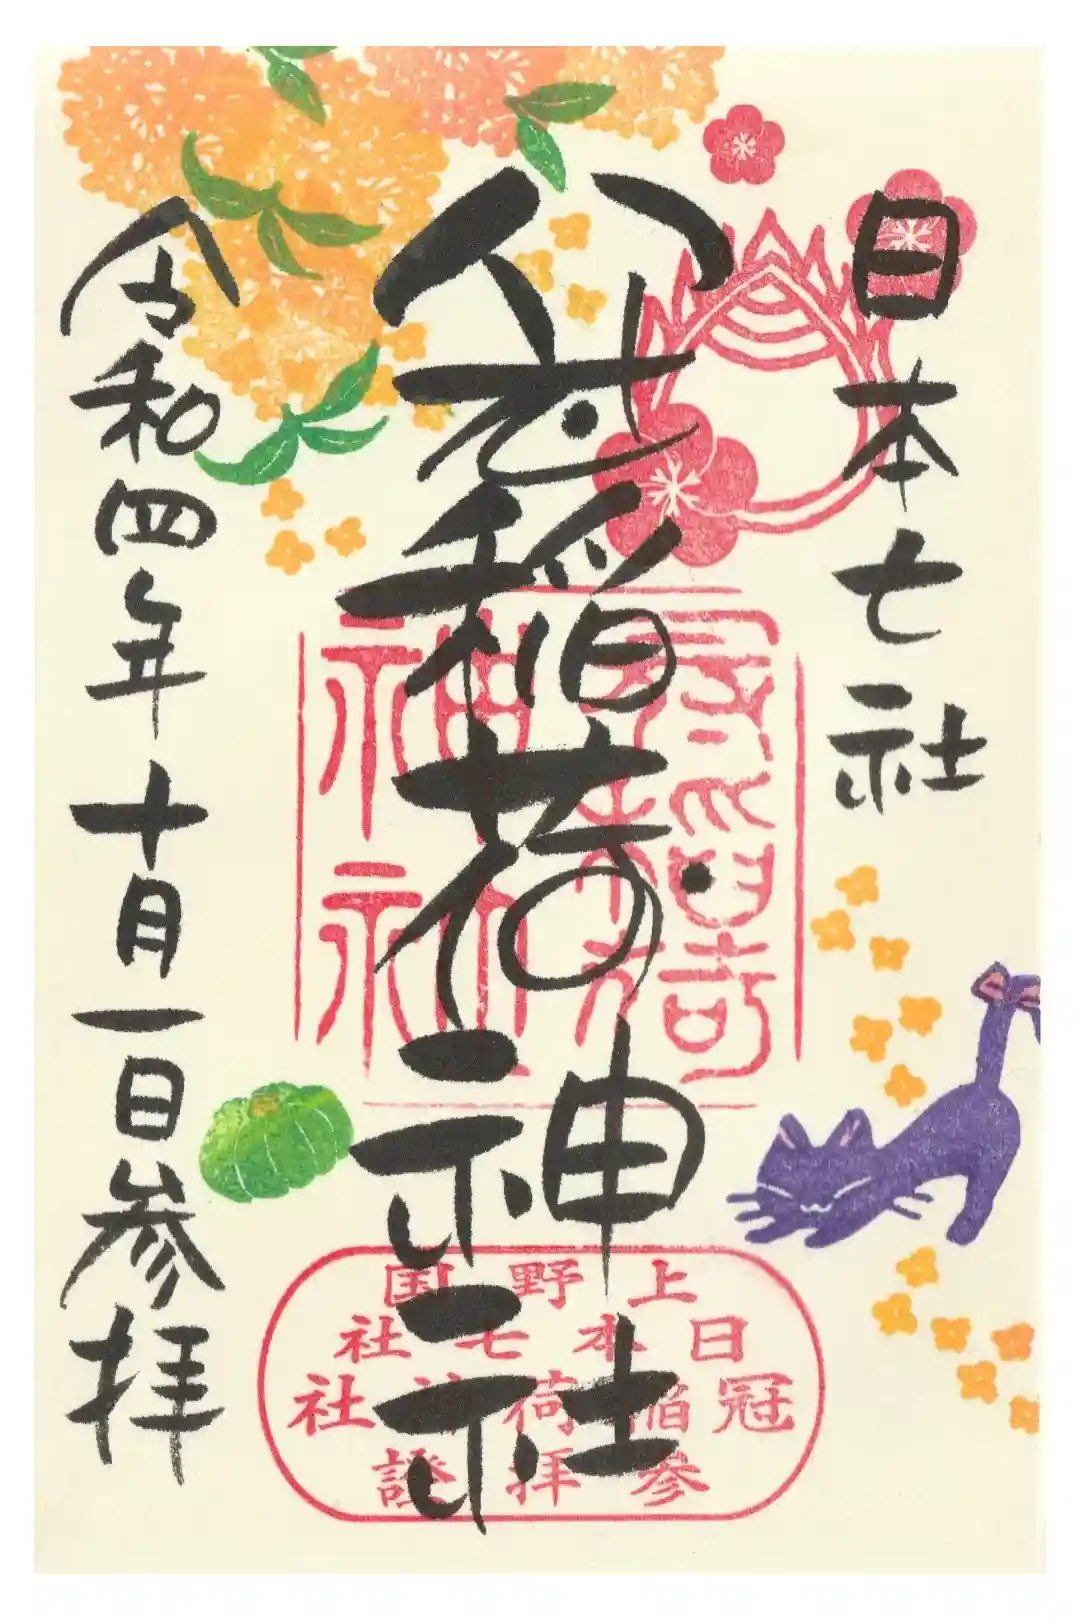 日本七社
冠稲荷神社
令和四年十月一日参拝
上野国
日本七社
冠稲荷神社
参拝證